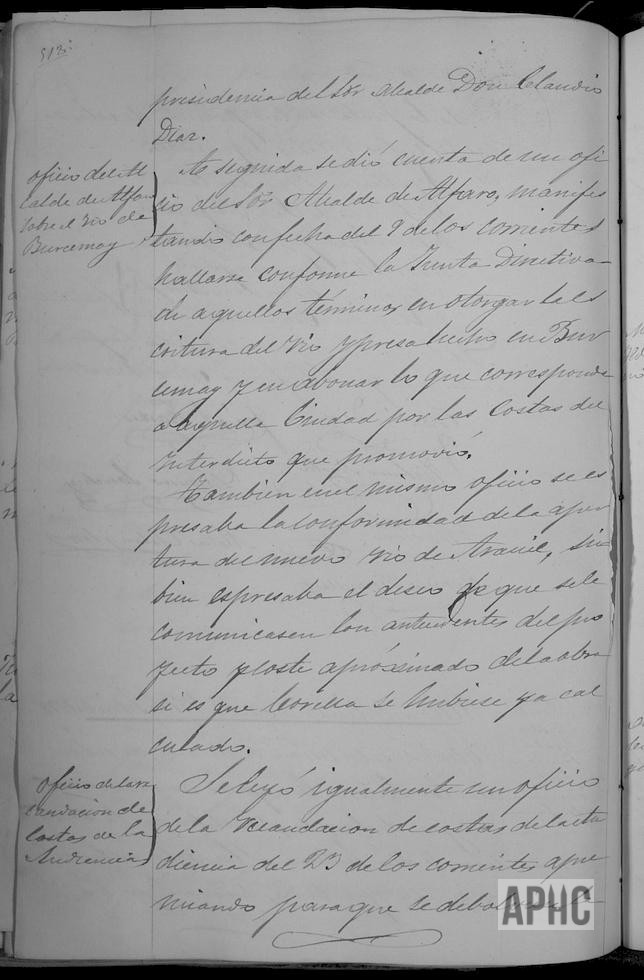 513
presidencia del Sor Alcalde Don Claudio
Diaz.
oficio del Al
calde de Alfaro
sobre el rio de
Burcemay
As seguida se dió cuenta de un ofi
cio del Sor Alcalde de Alfaro, manifes
tando con fecha del 9 de los corrientes
hallarse conforme la Junta Directiva
de aquellos términos en otorgar la es
critura del rio y presa hecho en Bur
cemay y en abonar lo que corresponda
a aquella Ciudad por las costas del
Interdicto que promovió.
Tambien en el mismo oficio se es
presaba la conformidad de la aper
tura del nuevo rio de Araciel, si
bien espresaba el deseo de que se le
comunicasen los antecedentes del pro
yecto y coste apróximado de la obra
si es que Corella se hubiese ya cal
culado.
oficio de la re
caudacion de
costas de la
Audiencia
Se leyó igualmente un oficio
de la recaudacion de costas de la Au
diencia del 23 de los corrientes apre
miando para que se
APHC